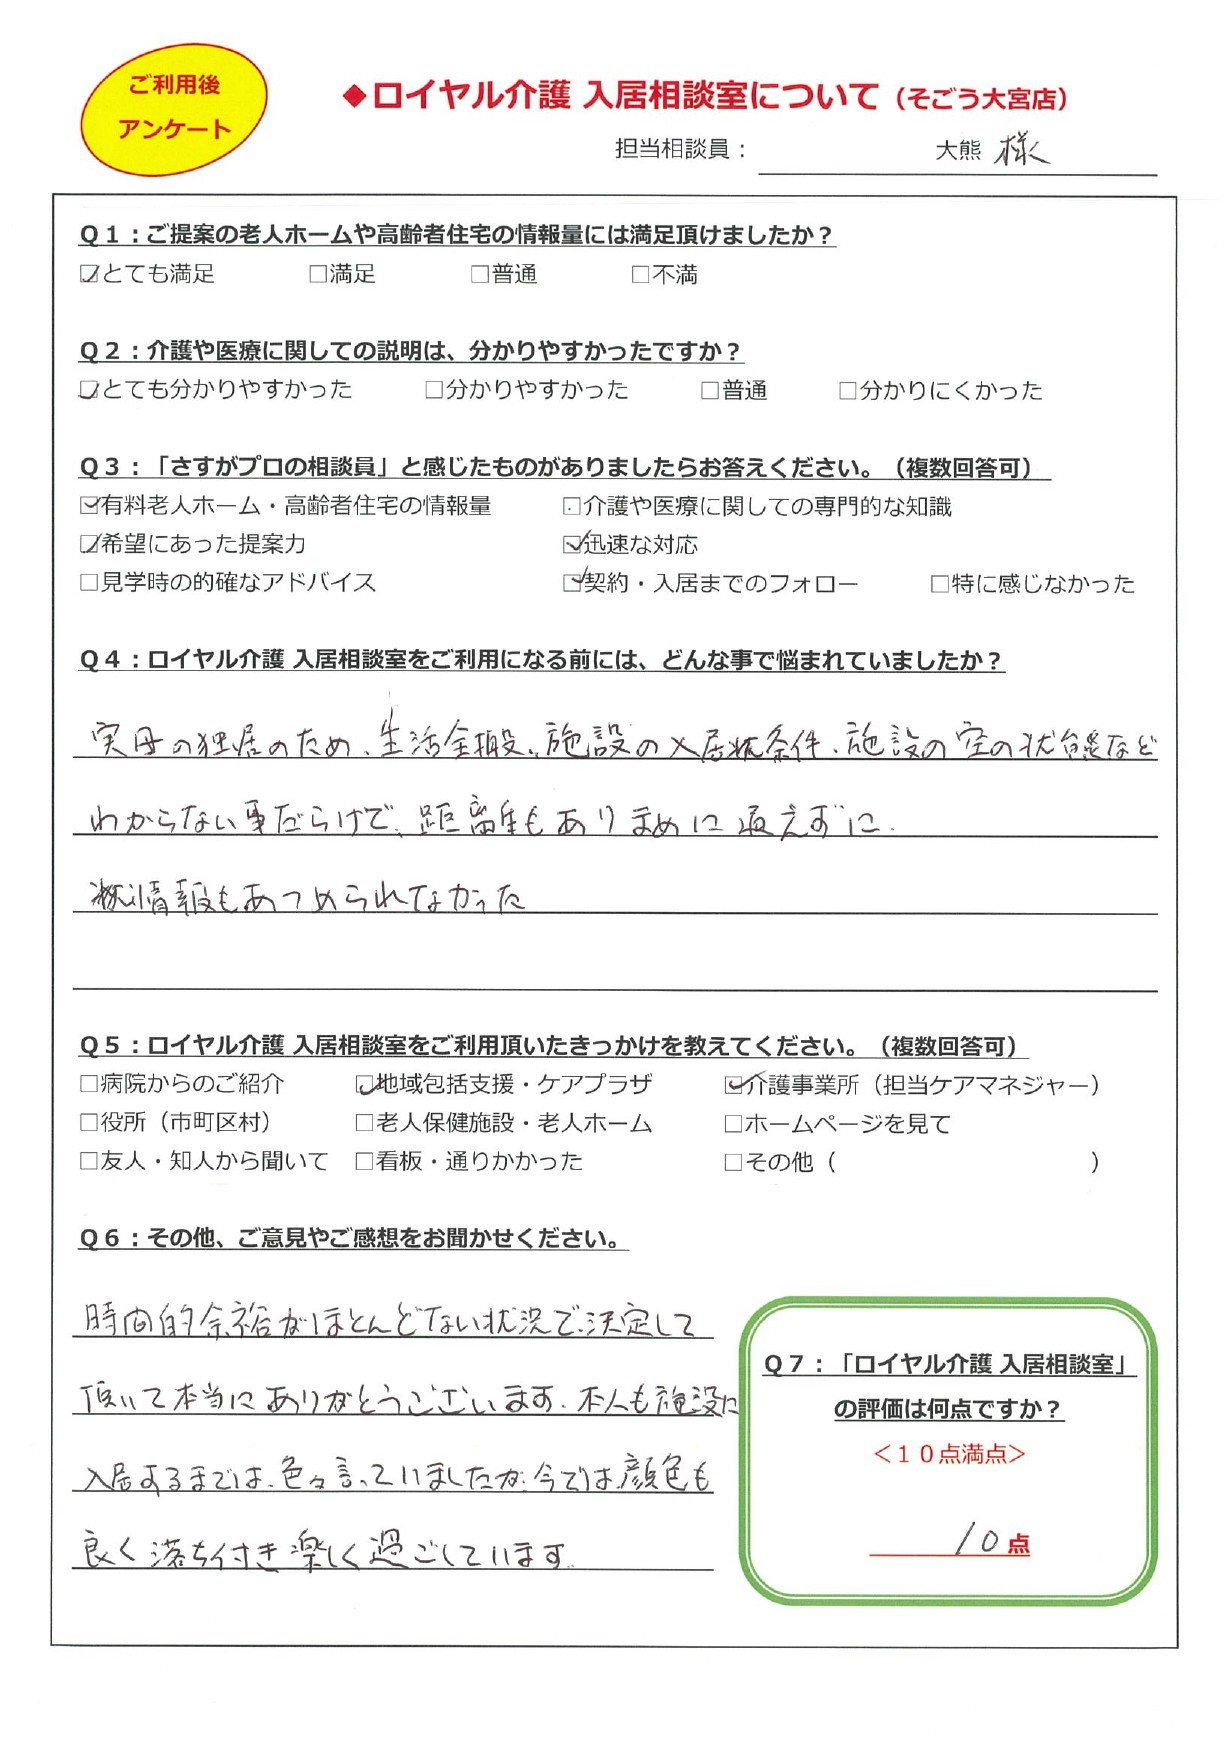 ご利用後
アンケート
◆ロイヤル介護 入居相談室について（そごう大宮店）
担当相談員： 大熊 様
Ｑ１：ご提案の老人ホームや高齢者住宅の情報量には満足頂けましたか？
☑とても満足 □満足 □普通 □不満
Ｑ２：介護や医療に関しての説明は、分かりやすかったですか？
☑とても分かりやすかった □分かりやすかった □普通 □分かりにくかった
Ｑ３：「さすがプロの相談員」と感じたものがありましたらお答えください。（複数回答可）
☑有料老人ホーム・高齢者住宅の情報量 □介護や医療に関しての専門的な知識
☑希望にあった提案力 ☑迅速な対応
□見学時の的確なアドバイス ☑契約・入居までのフォロー □特に感じなかった
Ｑ４：ロイヤル介護 入居相談室をご利用になる前には、どんな事で悩まれていましたか？
実母の独居のため、生活全搬、施設の入居条件、施設の空の状態など
わからない事だらけで、距離もあり まめに 返えずに
情報もあつめられなかった
Ｑ５：ロイヤル介護 入居相談室をご利用頂いたきっかけを教えてください。（複数回答可）
□病院からのご紹介 ☑地域包括支援・ケアプラザ ☑介護事業所（担当ケアマネジャー）
□役所（市町区村） □老人保健施設・老人ホーム □ホームページを見て
□友人・知人から聞いて □看板・通りかかった □その他（ ）
Ｑ６：その他、ご意見やご感想をお聞かせください。
時間的余裕がほとんどない状況で、決定して
頂いて本当にありがとうございます。本人も施設に
入居するまでは、色々言っていましたが、今では顔色も
良く落ち付き楽しく過ごしています。
Ｑ７：「ロイヤル介護 入居相談室」
の評価は何点ですか？
＜１０点満点＞
10 点